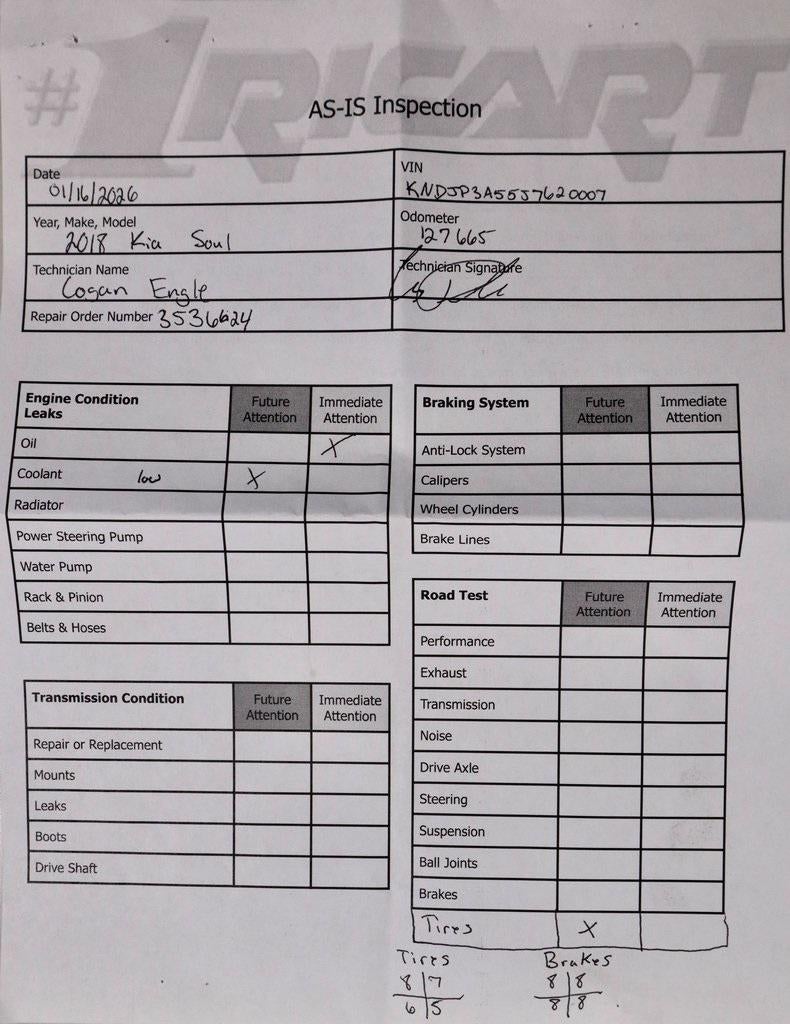 #1 RICART
AS-IS Inspection
Date
01/16/2026
VIN
KNDJP3A55J7620007
Year, Make, Model
2018 Kia Soul
Odometer
127665
Technician Name
Logan Engle
Technician Signature
Repair Order Number 3536624
Engine Condition Leaks Future Attention Immediate Attention
Oil X
Coolant low X
Radiator
Power Steering Pump
Water Pump
Rack & Pinion
Belts & Hoses
Transmission Condition Future Attention Immediate Attention
Repair or Replacement
Mounts
Leaks
Boots
Drive Shaft
Braking System Future Attention Immediate Attention
Anti-Lock System
Calipers
Wheel Cylinders
Brake Lines
Road Test Future Attention Immediate Attention
Performance
Exhaust
Transmission
Noise
Drive Axle
Steering
Suspension
Ball Joints
Brakes
Tires X
Tires
8 7
6 5
Brakes
8 8
8 8